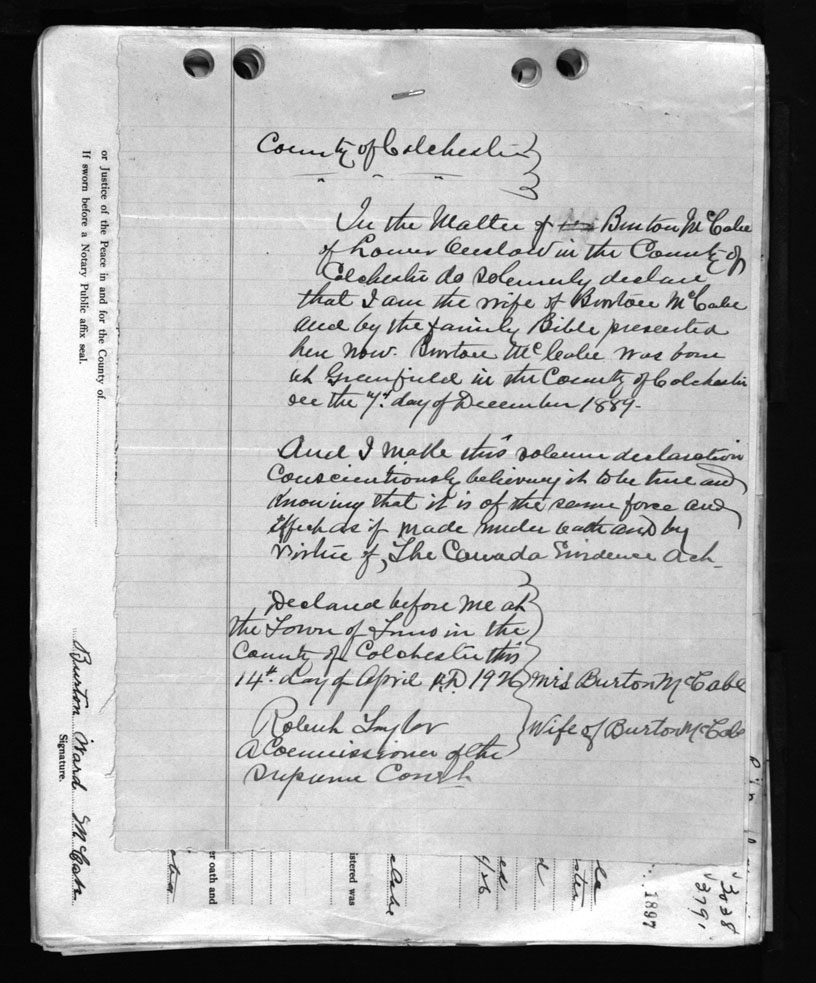 County of Colchester
In the Matter of Burton McCabe
of Lower Onslow in the County of
Colchester do solemnly declare
that I am the wife of Burton McCabe
and by the family Bible presented
here now. Burton McCabe was born
at Greenfield in the County of Colchester
on the 7th day of December 1889.
And I make this solemn declaration
conscientiously believing it to be true and
knowing that it is of the same force and
effect as if made under oath and by
virtue of, The Canada Evidence Act
Declared before me at
the Town of Truro in the
County of Colchester this
14th day of April A.D. 1926
Robert Taylor
A Commissioner of the
Supreme Court
Mrs Burton McCabe
Wife of Burton McCabe
or Justice of the Peace in and for the County of
If sworn before a Notary Public affix seal.
Burton Ward McCabe
Signature.
er oath and
istered was
cCabe
ed
1897
"3038
"3791